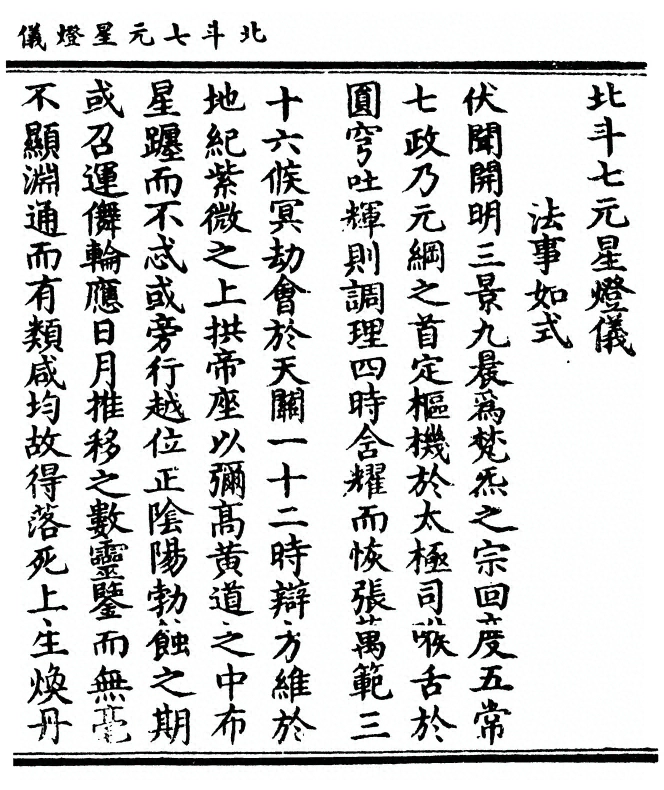 北斗七元星燈儀
北斗七元星燈儀
法事如式
伏聞開明三景九晨爲梵炁之宗回度五常
七政乃元綱之首定樞機於太極司喉舌於
圓穹吐輝則調理四時含耀而恢張萬範三
十六候冥劫會於天關一十二時辯方維於
地紀紫微之上拱帝座以彌高黄道之中布
星躔而不忒或旁行越位正陰陽勃蝕之期
或召運儛輪應日月推移之數靈鑒而無毫
不顯淵通而有類咸均故得落死上生煥丹